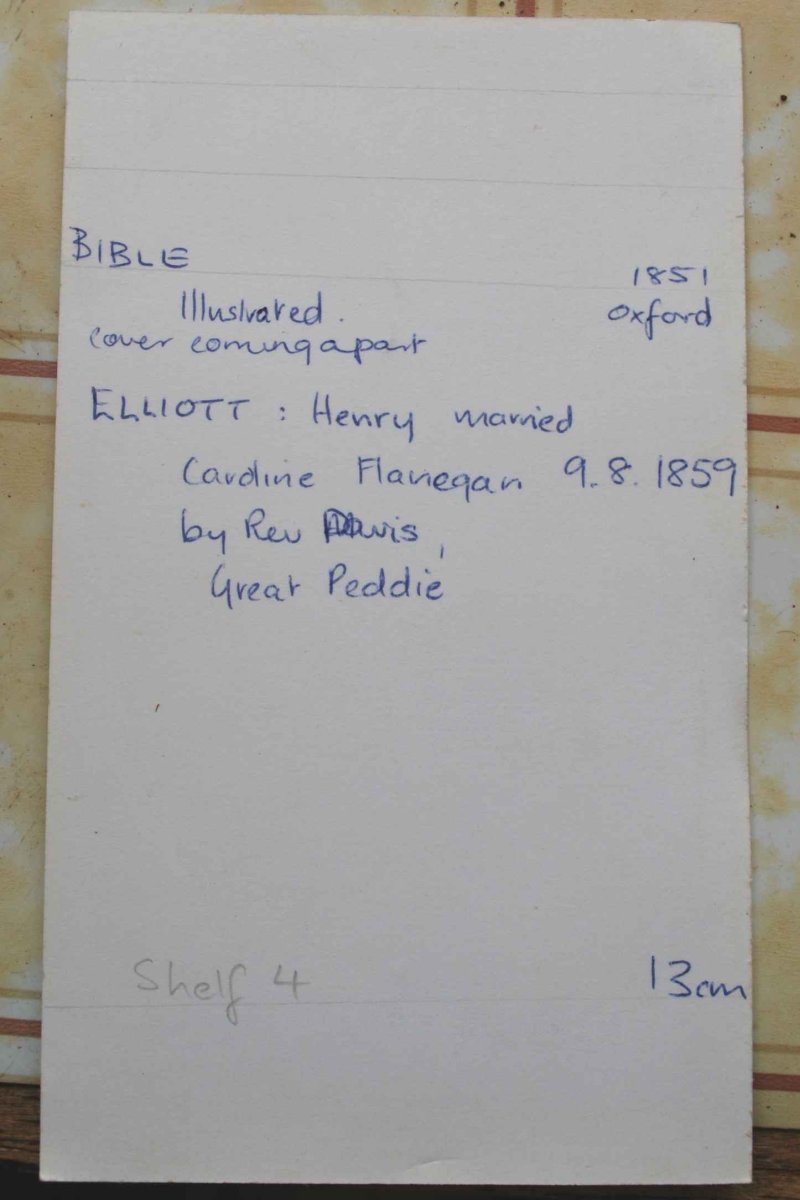 BIBLE
1851
Illustrated.
Oxford
cover coming apart
ELLIOTT : Henry married
Caroline Flanegan 9.8.1859
by Rev Davis,
Great Peddie
Shelf 4
13cm